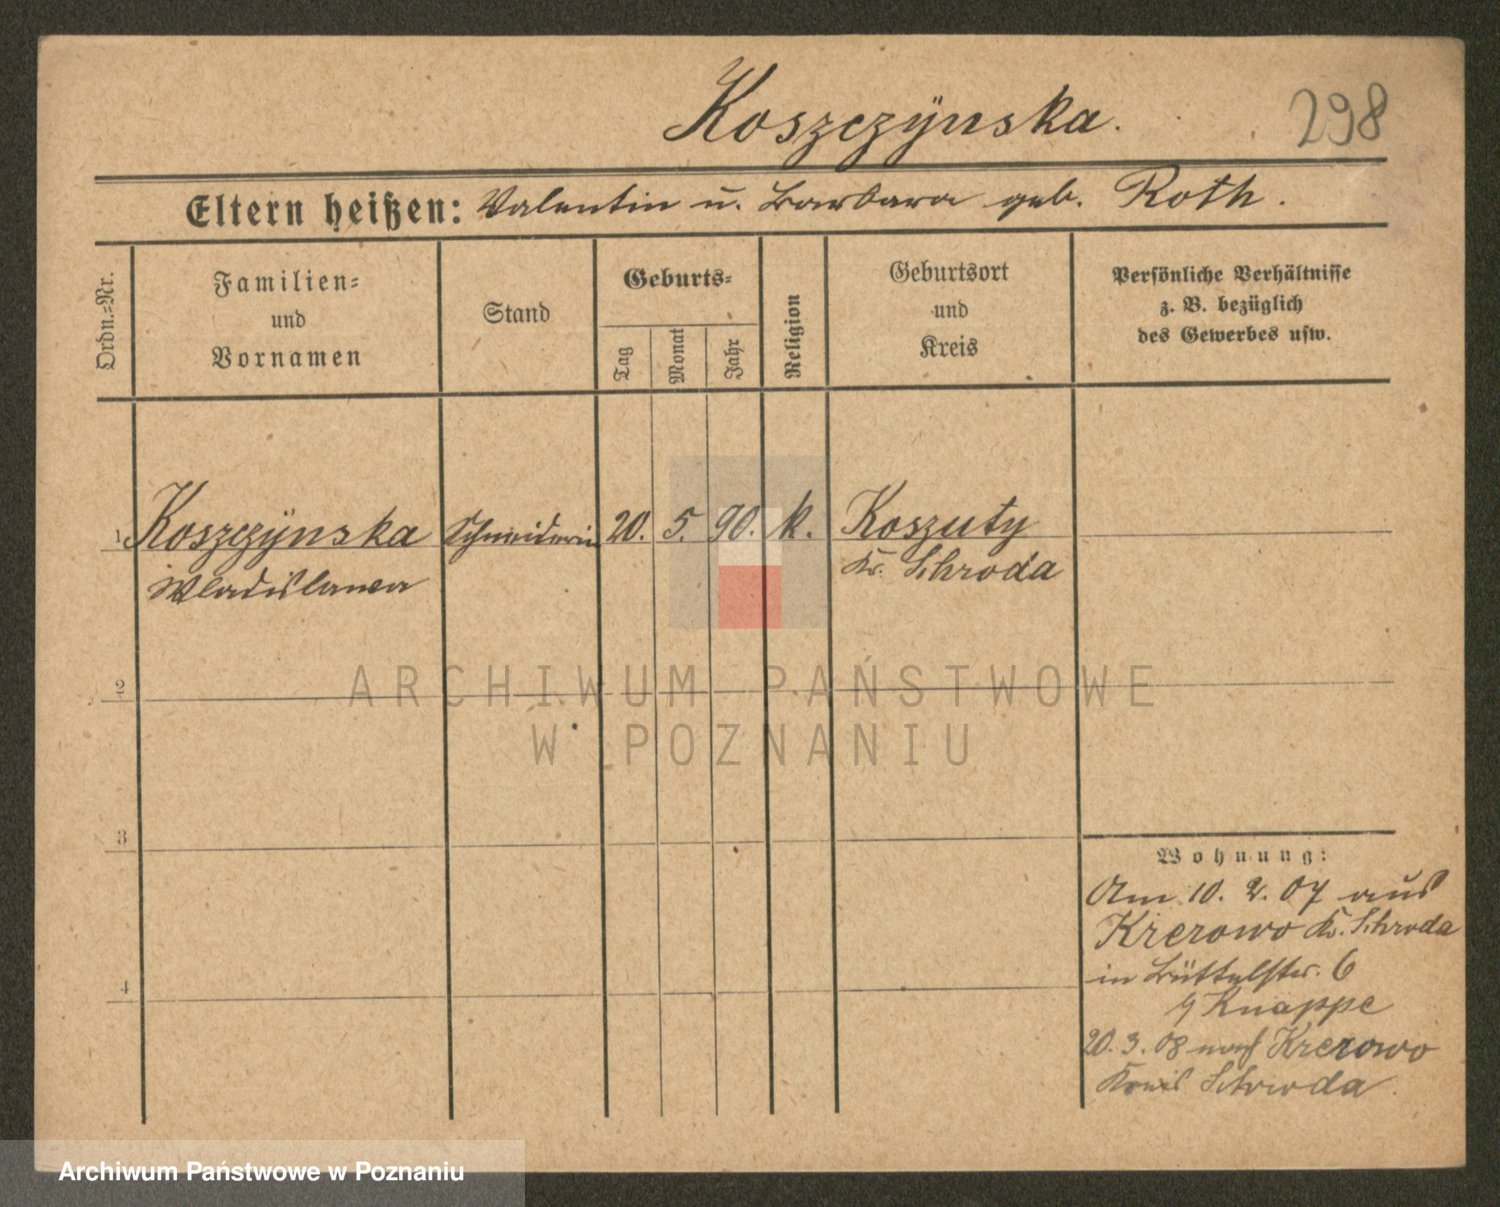 Koszczÿnska.
298
Eltern heißen: Valentin u. Barbara geb. Roth.
Ordn.=Nr.
Familien=
und
Vornamen
Stand
Geburts=
Tag
Monat
Jahr
Religion
Geburtsort
und
Kreis
Persönliche Verhältnisse
z. B. bezüglich
des Gewerbes usw.
1 Koszczÿnska Schneiderin 20. 5. 90. k. Koszuty
Wladislawa Kr. Schroda
2
ARCHIWUM PAŃSTWOWE
W POZNANIU
3
4
Wohnung:
Am 10. 2. 07 aus
Krerowo Kr. Schroda
in Büttelstr. 6
Knappe
20. 3. 08 nach Krerowo
Kreis Schroda
Archiwum Państwowe w Poznaniu